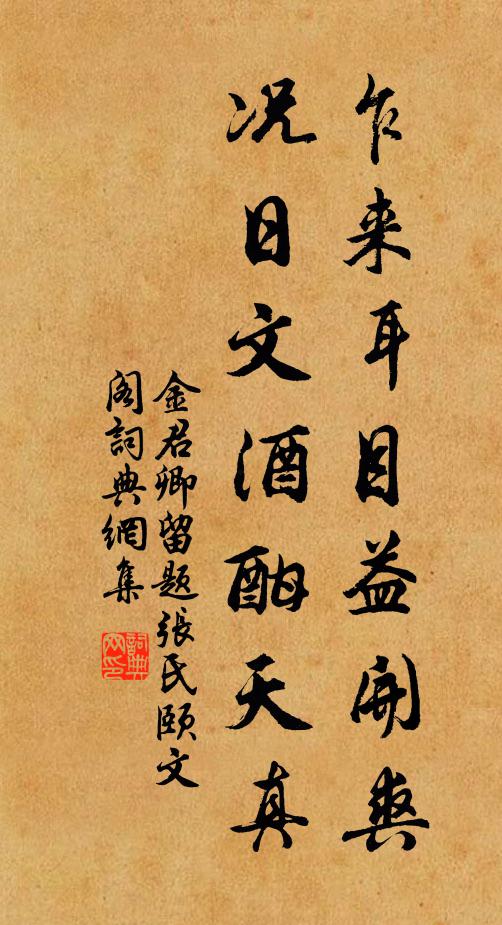 乍来耳目益开爽
况日文酒酣天真
金君卿留题张氏颐文
阁词典网集
词典网印